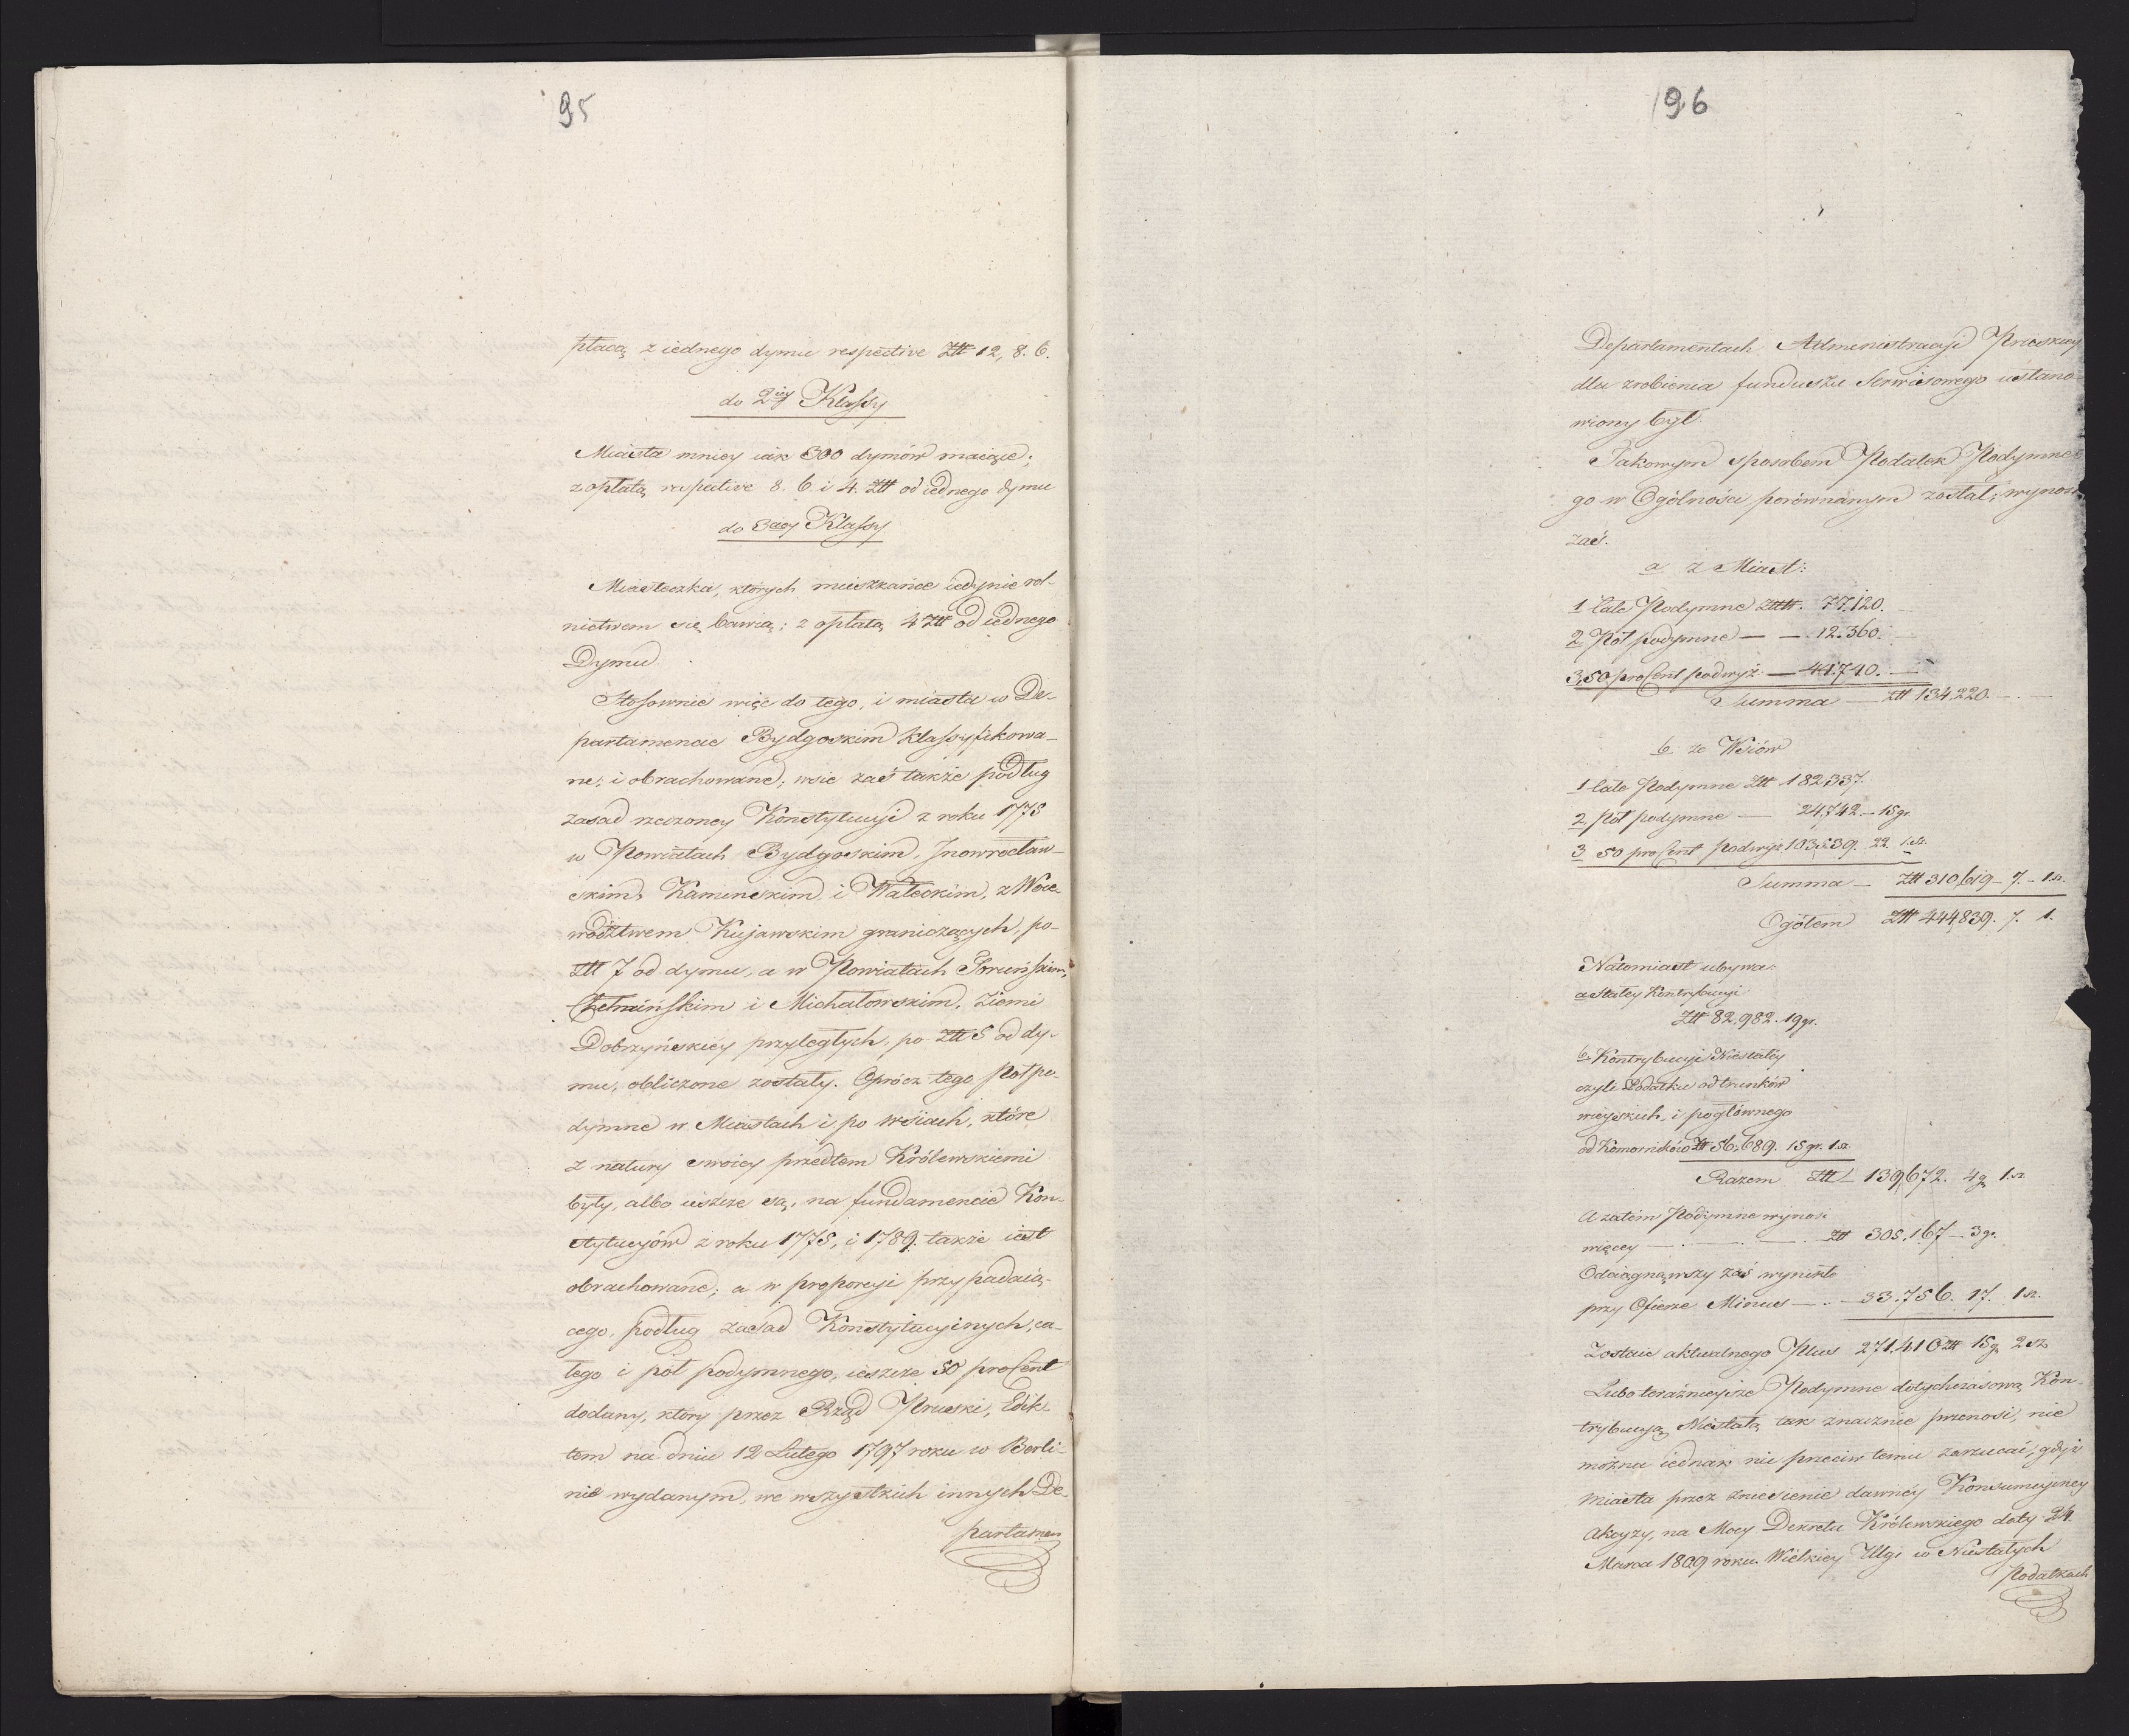 95
płacą z iednego dymu respective Złł 12, 8. 6.
do 2iey Klassy
Miasta mniey iak 300 dymów maiące;
z opłatą respective 8. 6 i 4. Złł od iednego dymu
do 3ciey Klassy
Miasteczka, których mieszkańce iedynie rol-
nictwem się bawią; z opłatą 4 Złł od iednego
Dymu
Stosownie więc do tego, i miasta w De-
partamencie Bydgoskim klassyfikowa-
ne, i obrachowane; wsie zaś także podług
zasad rzeczoney Konstytucyi z roku 1775
w Powiatach Bydgoskim, Inowrocław-
skim, Kamińskim i Wałeckim, z Woie-
wództwem Kujawskim graniczących, po-
Złł 7 od dymu, a w Powiatach Toruńskim,
Chełmińskim i Michałowskim, Ziemi
Dobrzyńskiey przyległych, po Złł 5 od dy-
mu, obliczone zostały. Oprócz tego Półpo-
dymne w Miastach i po wsiach, które
z natury swoiey przedtem Królewskiemi
były, albo ieszcze są, na fundamencie Kon-
stytucyiów z roku 1775, i 1789. także iest
obrachowane; a w proporcyi przypadaią-
cego, podług zasad Konstytucyinych, ca-
łego i pół podymnego, ieszcze 50 proCent
dodany, który przez Rząd Pruski, Edik-
tem na dniu 12 Lutego 1797 roku w Berli-
nie wydanym, we wszystkich innych De-
partamen
196
Departamentach Administracyi Pruskiey
dla zrobienia funduszu Serwisowego ustano
wiony był.
Takowym sposobem Podatek Podymne-
go w Ogólności porównanym został; wynosi
zaś.
a z Miast:
1 Całe Podymne Złł. 77.120.
2 Pół podymne — — 12.360.
3, 50 proCent podwyż. — 44.740.
Summa — Złł 134,220. —
b. ze Wsiów
1 Całe Podymne Złł 182,337.
2. Pół podymne — 24,742. — 15 gr.
3 50 proCent Podwyż. 103,539. 22. 1. sz.
Summa — Złł 310,619 — 7. — 1 sz.
Ogółem Złł 444,839. 7. 1.
Natomiast ubywa:
a Stałey Kontrybucyi
Złł 82,982. 19 gr.
b. Kontrybucyi Niestałey
czyli Podatku od trunków
wieyskich, i pogłównego
od Komorników Złł 56,689. 15 gr. 1 sz.
Razem Złł 139,672. 4 g. 1 sz
A zatém Podymne wynosi
więcey — Złł 305,167 — 3 gr.
Odciągnąwszy zaś wynikłe
przy Ofierze Minus — 33.756. 17. 1 sz.
Zostaie aktualnego Plus 271,410 Złł 15 g. 2 sz
Lubo teraźnieysze Podymne dotychczasową Kon-
trybucyą Niestałą tak znacznie przenosi, nie
można iednak nic przeciw temu zarzucać, gdyż
Miasta przez zniesienie dawney Konsumcyiney
Akcyzy, na Mocy Dekretu Królewskiego daty 24.
Marca 1809 roku Wielkiey Ulgi w Niestałych
Podatkach